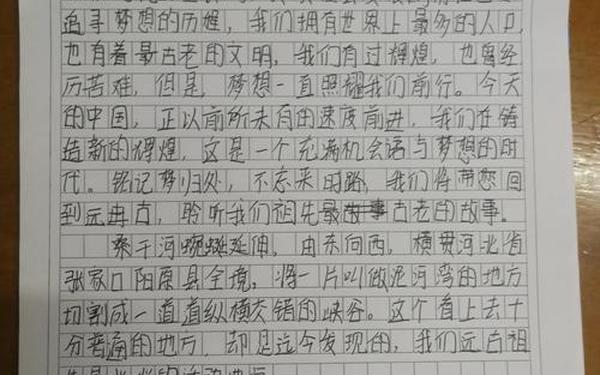 追寻梦想的历炼，我们拥有世界上最多的人口，
也有着最古老的文明，我们有过辉煌，也曾经
历苦难，但是，梦想一直照耀我们前行。今天
的中国，正以前所未有的速度前进，我们在铸
造新的辉煌，这是一个充满机会语与梦想的时
代。铭记梦归处，不忘来时路，我们将带您回
到远古，聆听我们祖先最古老的故事。
桑干河蜿蜒延伸，由东向西，横贯河北省
张家口阳原县全境，将一片叫做泥河湾的地方
切割成一道道纵横交错的峡谷。这个看上去十
分普通的地方，却是迄今发现的，我们远古祖